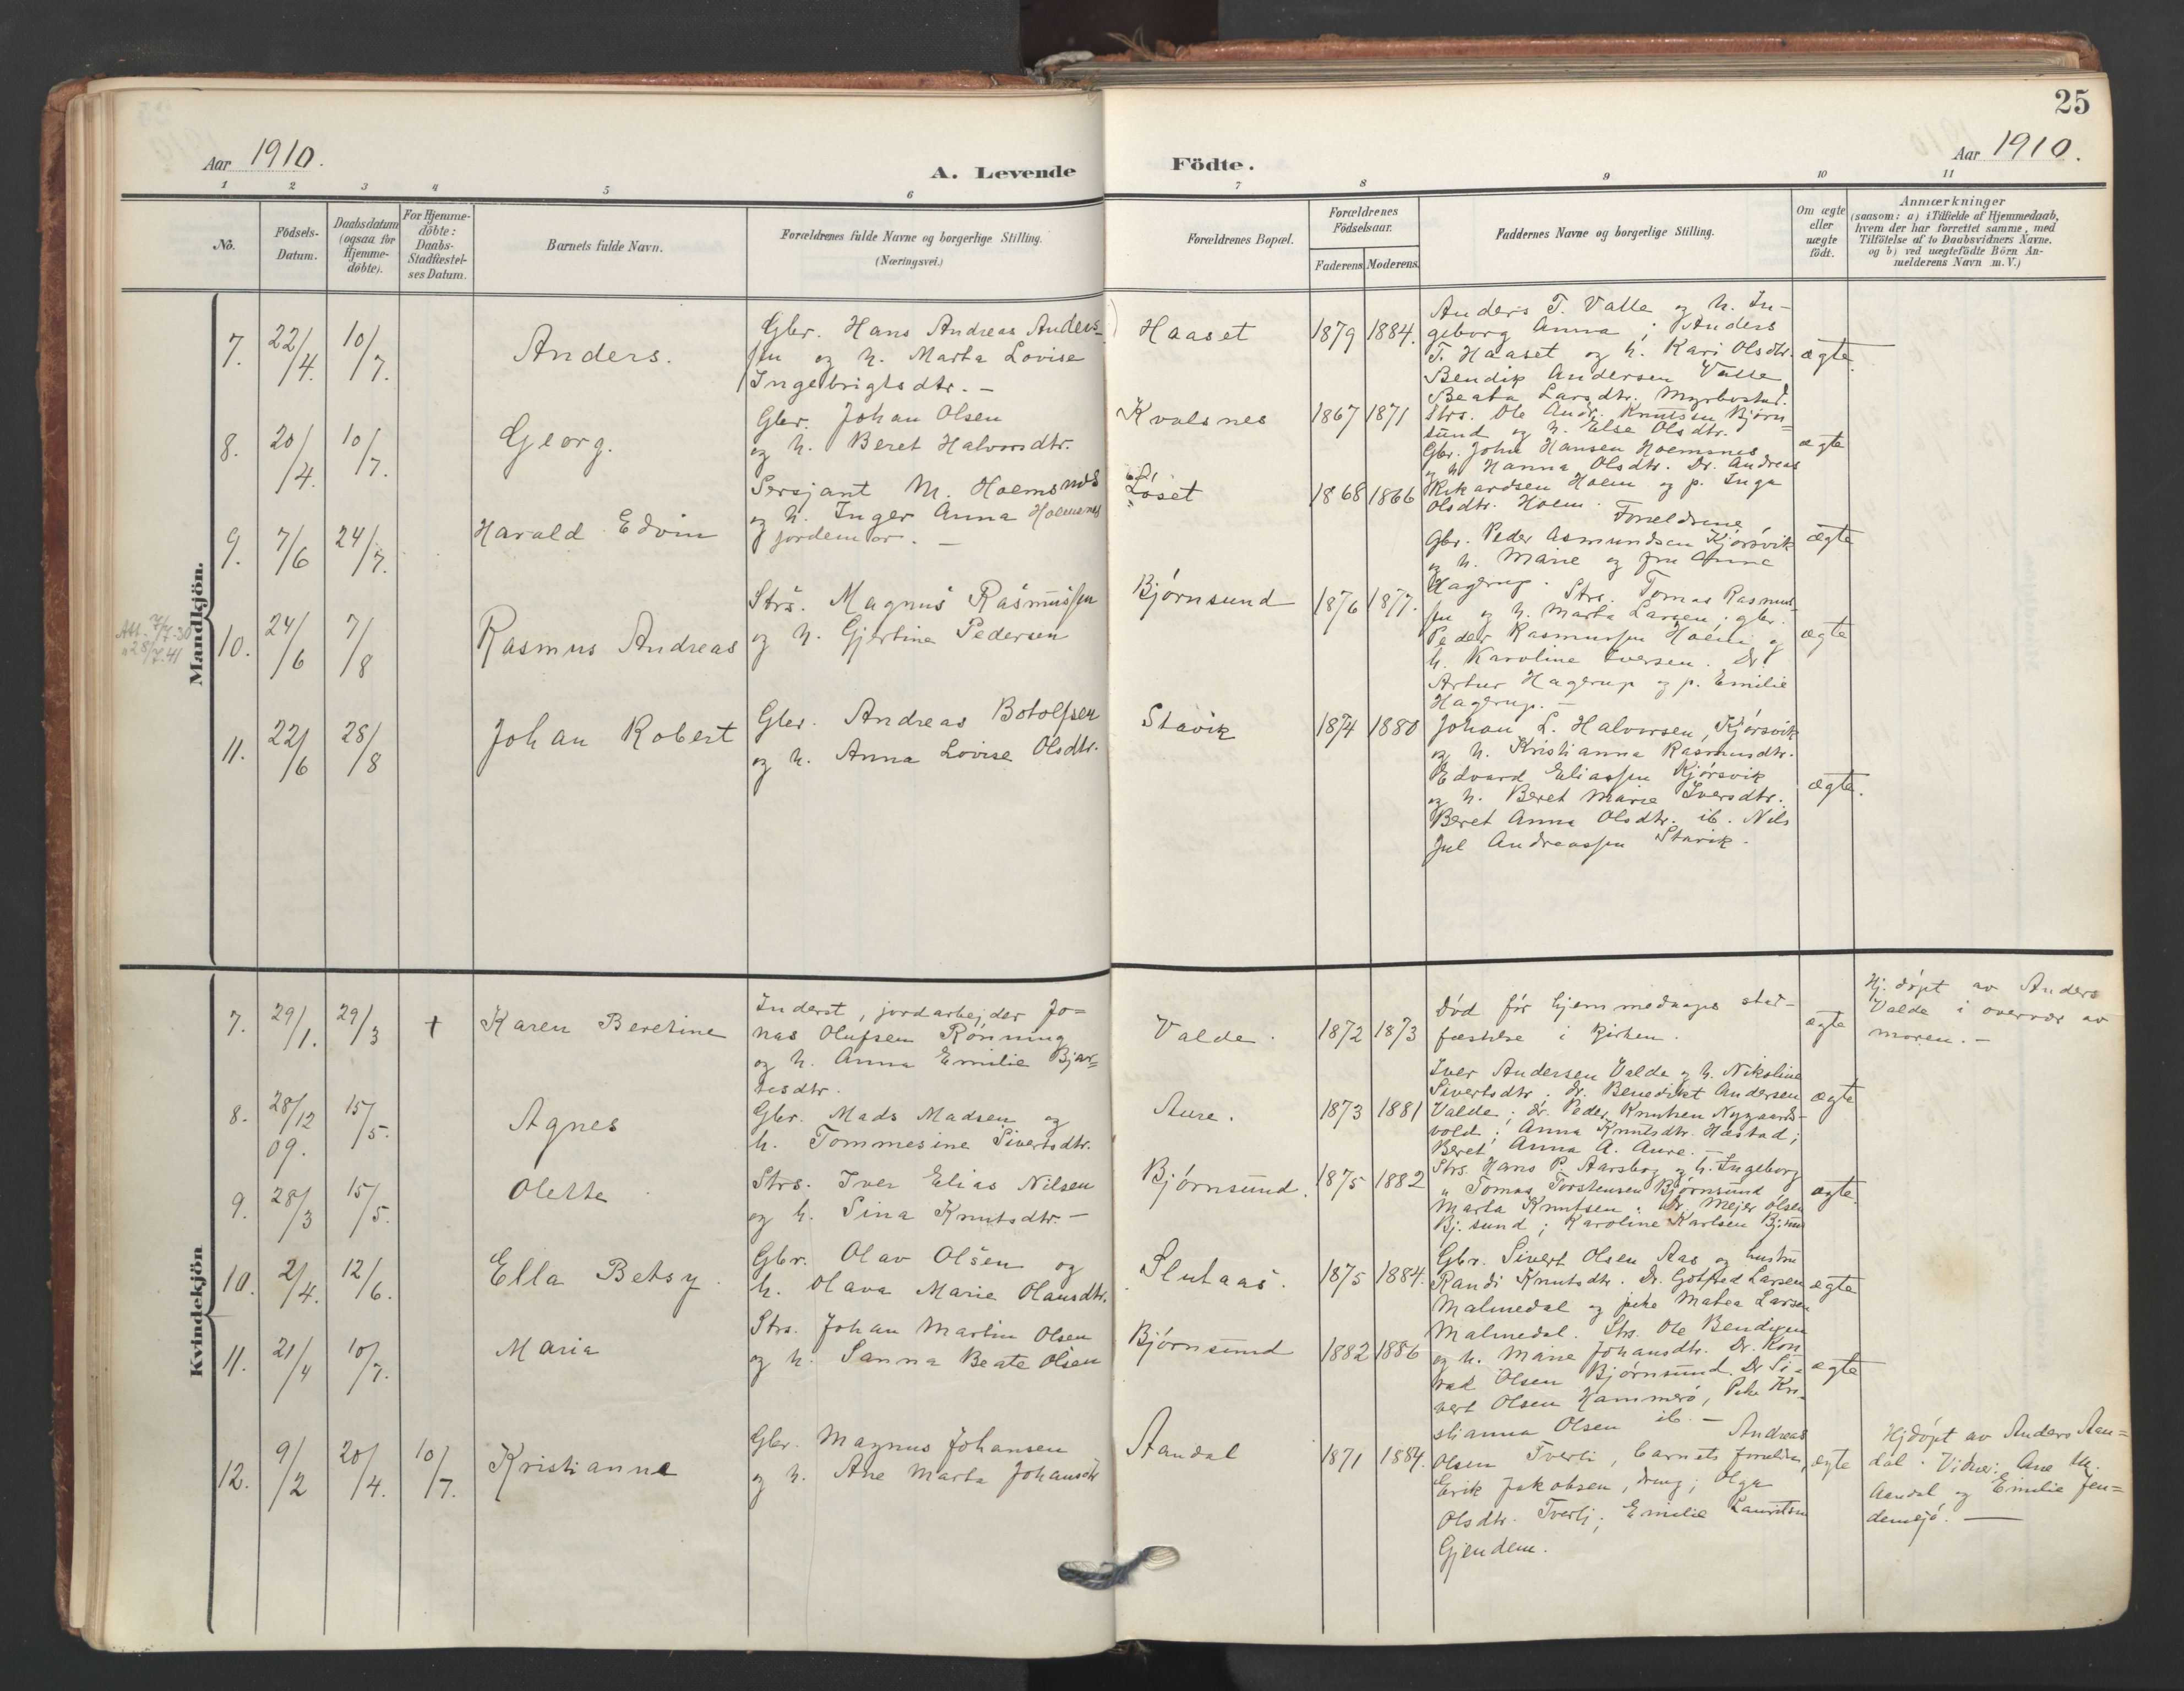 25
Aar 1910.
A. Levende
Födte.
Aar 1910.
1 2 3 4 5 6 7 8 9 10 11
Nö.
Födsels-
Datum.
Daabsdatum
(ogsaa for
Hjemme-
døbte).
For Hjemme-
döbte:
Daabs-
Stadfæstel-
ses Datum.
Barnets fulde Navn.
Forældrenes fulde Navne og borgerlige Stilling.
(Næringsvei.)
Forældrenes Bopæl.
Forældrenes
Födselsaar.
Faderens.
Moderens.
Faddernes Navne og borgerlige Stilling.
Om ægte
eller
uægte
födt.
Anmærkninger
(saasom: a) i Tilfælde af Hjemmedaab,
hvem der har forrettet samme, med
Tilföielse af to Daabsvidners Navne.
og b) ved uægtefödte Börn An-
melderens Navn m. V.)
Mandkjön.
7.
22/4.
10/7.
Anders.
Gbr. Hans Andreas Anders-
sen og h. Marta Lovise
Ingebrigtsdtr. –
Haaset
1879
1884.
Anders T. Valle og h. In-
geborg Anna; Anders
T. Haaset og h. Kari Olsdtr.
Bendik Andersen Valle
Beata Larsdtr. Myrbostad.
ægte.
8.
20/4.
10/7.
Georg.
Gbr. Johan Olsen
og h. Beret Halvorsdtr.
Kvalsnes
1867
1871
Strs. Ole Andr. Knutsen Bjørn-
sund og h. Else Olsdtr.
Gbr. John Hansen Hoemsnes
og h. Hanna Olsdtr. Dr. Andreas
Rikardsen Hoem og p. Inga
Olsdtr. Hoem.
ægte
9.
7/6
24/7.
Harald Edvin
Sersjant M. Hoemsnes
og h. Inger Anna Hoemsnes
jordemor. –
Løset
1868
1866
Foreldrene,
Gbr. Peder Asmundsen Kjørsvik
og h. Marie og fru Anna
Hagerup.
ægte
Att. 7/7-30
" 28/7.41
10.
24/6
7/8
Rasmus Andreas
Strs. Magnus Rasmussen
og h. Gjertine Pedersen
Bjørnsund
1876
1877.
Strs. Tomas Rasmus-
sen og h. Marta Larsen; gbr.
Peder Rasmussen Hoem og
h. Karoline Iversen. Dr.
Artur Hagerup og p. Emilie
Hagerup. –
ægte
11.
22/6
28/8
Johan Robert
Gbr. Andreas Botolfsen
og h. Anna Lovise Olsdtr.
Stavik
1874
1880
Johan L. Halvorsen, Kjørsvik
og h. Kristianna Rasmusdtr.
Edvard Eliassen Kjørsvik
og h. Beret Marie Iversdtr.
Beret Anna Olsdtr. ib. Nils
Jul Andreassen Stavik.
ægte.
Kvindekjön
7.
29/1.
29/3
+
Karen Beretine
Inderst, jordarbejder Jo=
nas Olufsen Rønning
og h. Anna Emilie Bjar=
tesdtr.
Valde.
1872
1873
Død før hjemmedaapes stad-
fæstelse i kirken.
ægte
Hj. døpt av Anders
Valde i overvær av
moren. –
8.
28/12
09.
15/5.
Agnes
Gbr. Mads Madsen og
h. Tommesine Sivertsdtr.
Aure.
1873
1881
Iver Andersen Valde og h. Nikoline
Sivertsdtr; dr. Benedikt Andersen
Valde; dr. Peder Knutsen Nygaards-
vold; Anna Knutsdtr. Hastad;
Beret Anna A. Aure. –
ægte
9.
28/3
15/5.
Olette
Strs. Iver Elias Nilsen
og h. Sina Knutsdtr. –
Bjørnsund.
1875
1882
Strs. Hans P. Aarsbog og h. Ingeborg
" Tomas Torstensen Bjørnsund
Marta Knutsen; Dr. Mejer Olsen
Bj.sund; Karoline Karlsen Bj.sund
ægte.
10.
2/4.
12/6.
Ella Betsy.
Gbr. Olav Olsen og
h. Olava Marie Olausdtr.
Slutaas.
1875
1884.
Gbr. Sivert Olsen Aas og hustru
Randi Knutsdtr. Dr. Gotfred Larsen
Malmedal og pike Matea Larsen
Malmedal.
ægte
11.
21/4
10/7.
Maria
Strs. Johan Martin Olsen
og h. Sanna Beate Olsen
Bjørnsund
1882
1886
Strs. Ole Bendixen
og h. Marie Johansdtr. Dr. Kon
rad Olsen Bjørnsund. Dr. Si-
vert Olsen Hammerø, Pike Kri-
stianna Olsen ib. –
ægte
12.
9/2
20/4.
10/7.
Kristianne
Gbr. Magnus Johansen
og h. Ane Marta Johansdtr
Aandal
1871
1884.
Andreas
Olsen Tverli, barnets foreldre,
Erik Jakobsen, dreng; Olga
Olsdtr. Tverli; Emilie Lauritsen
Gjendem.
ægte
Hjdøpt av Anders Aan=
dal. Vidner: Ane M.
Aandal og Emilie Jen=
demsjø. –